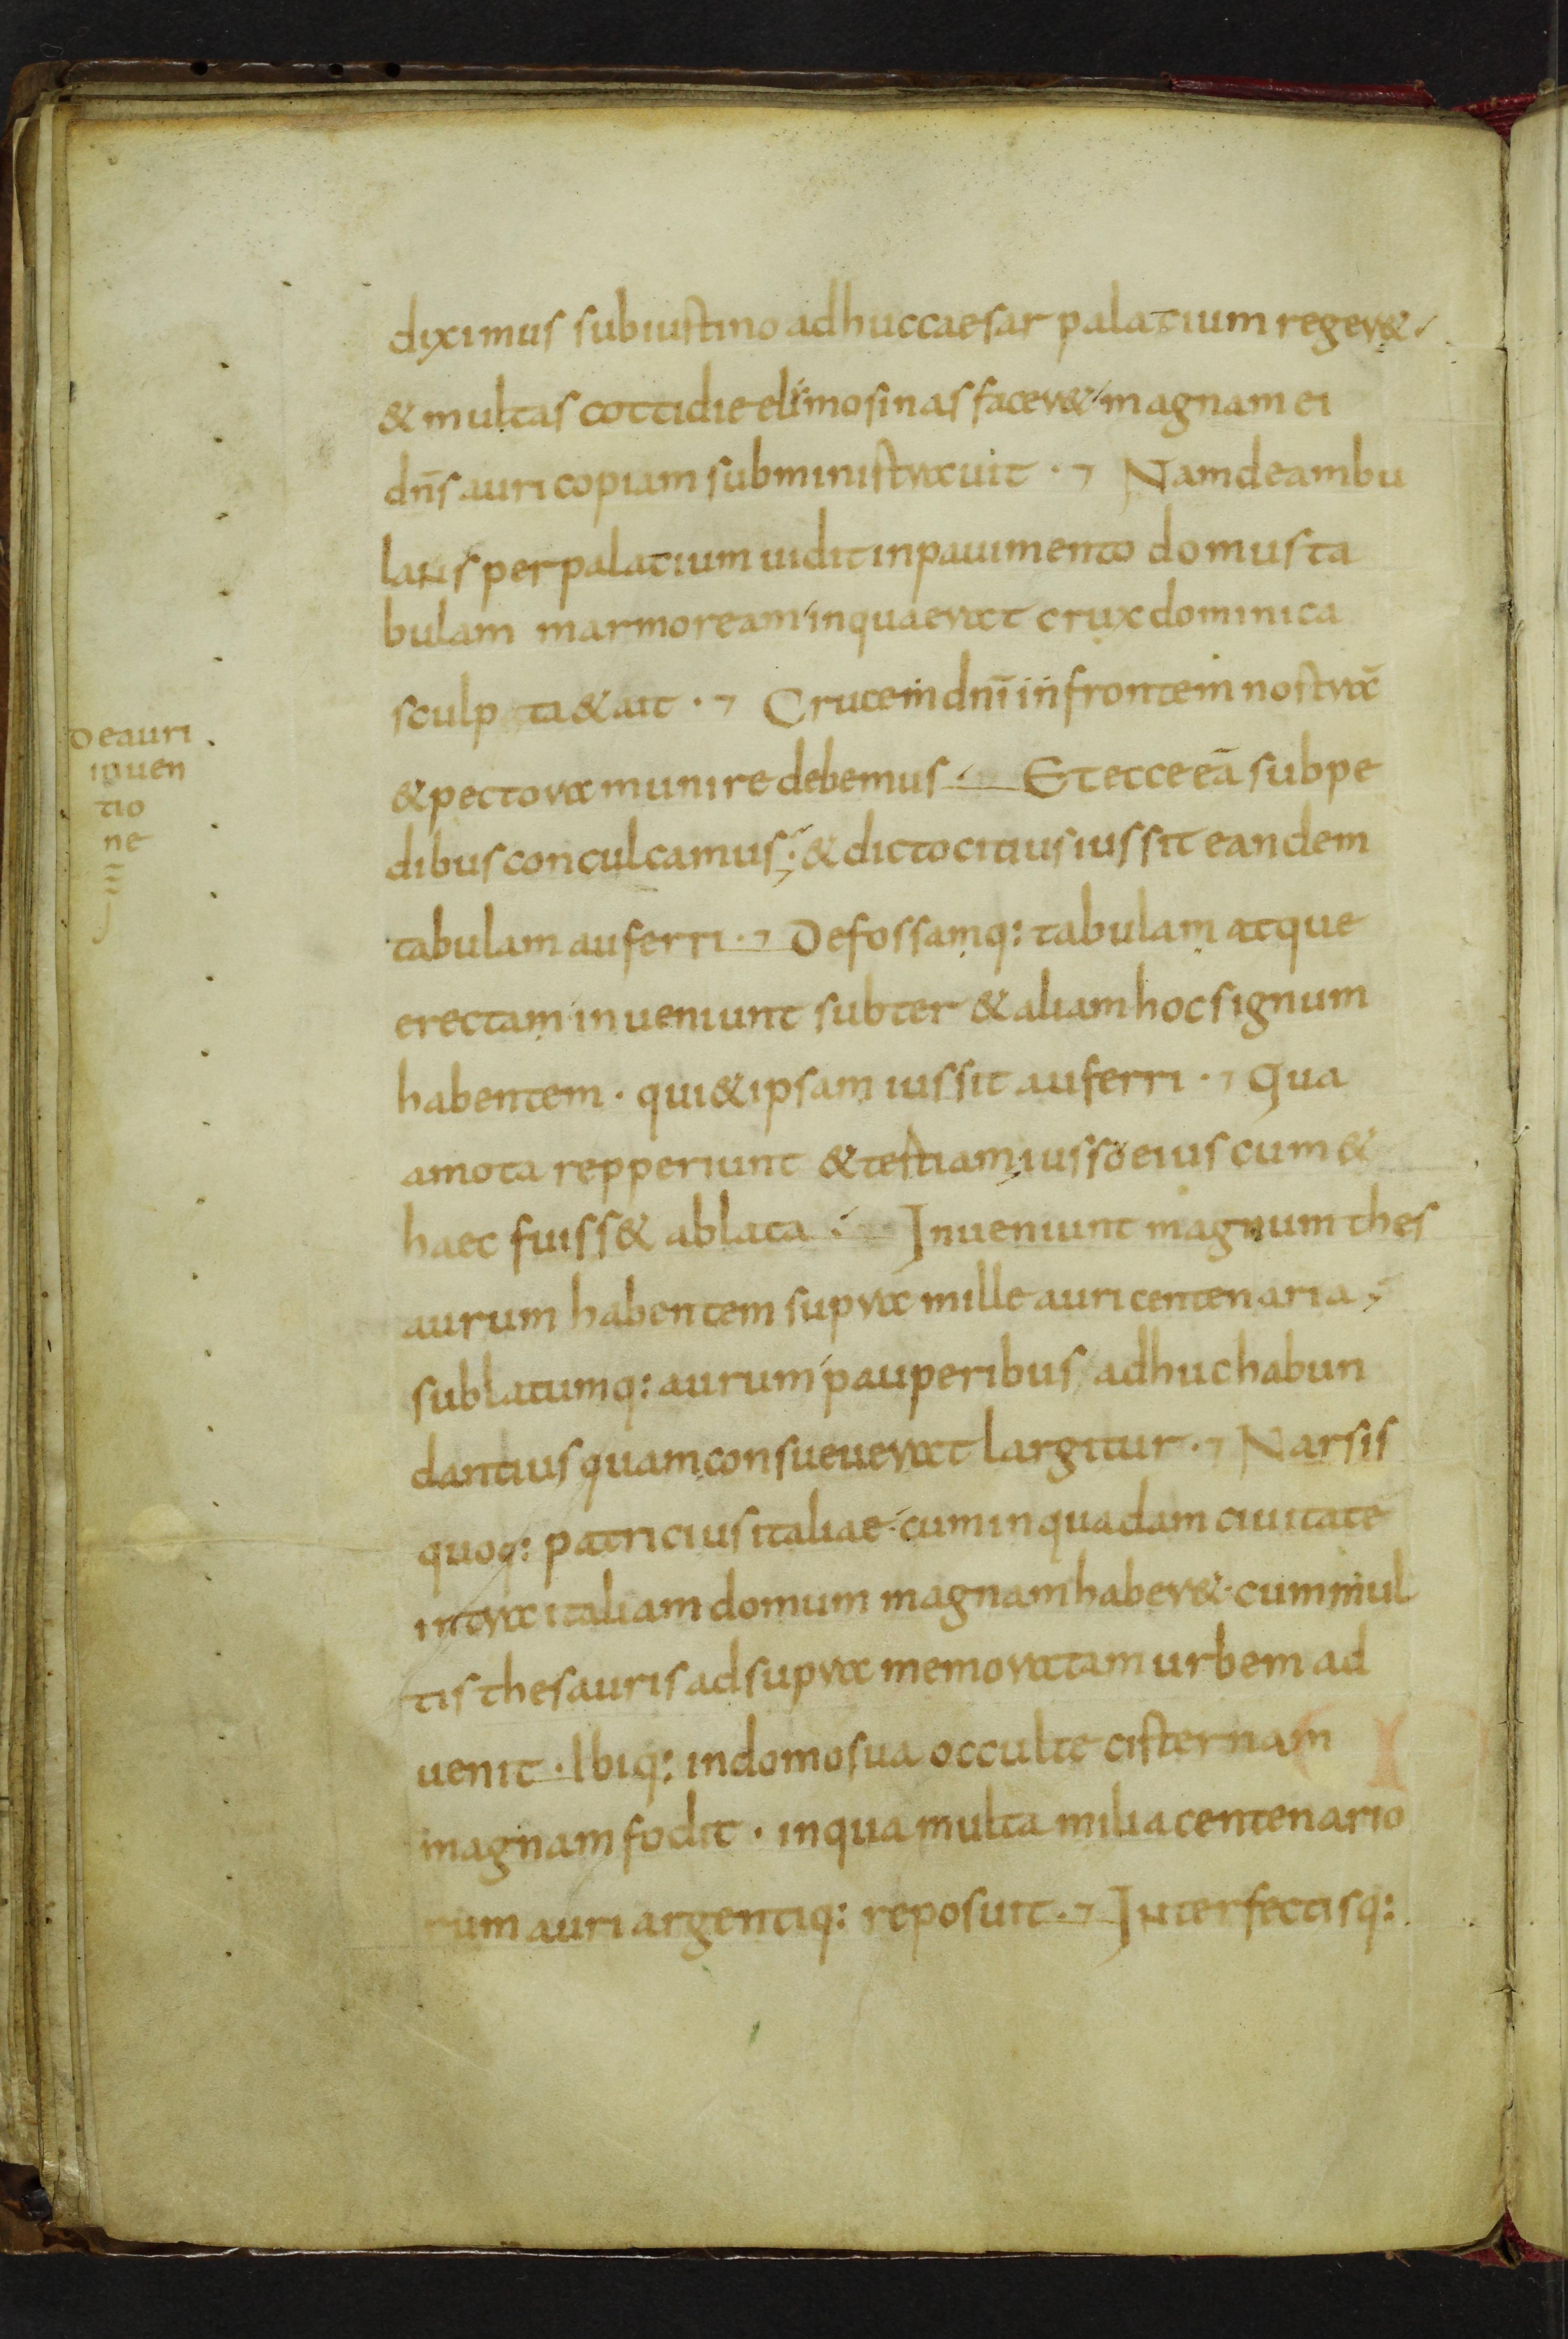 diximus sub iustino adhuc caesar palatium reger&
& multas cottidie elimosinas facer& magnam ei
dn̄s auri copiam subministrauit · ⁊ Nam deambu
lans per palatium uidit in pauimento domus ta
bulam marmoream in qua erat crux dominica
sculp ta & ait · ⁊ Crucem dn̄i in frontem nostrā
& pectora munire debemus · Et ecce eā sub pe
dibus conculcamus ; & dicto citius iussit eandem
tabulam auferri · ⁊ Defossamq: tabulam atque
erectam inueniunt subter & aliam hoc signum
habentem · qui & ipsam iussit auferri · ⁊ Qua
amota repperiunt & tertiam iusso eius cum &
haec fuiss& ablata · Inueniunt magnum thes
aurum habentem supra mille auri centenaria ;
sublatumq: aurum pauperibus adhuc habun
dantius quam consueuerat largitur · ⁊ Narsis
quoq: patricius italiae · cum in quadam ciuitate
intra italiam domum magnam haber& · cum mul
tis thesauris ad supra memoratam urbem ad
uenit · Ibiq: in domo sua occulte cisternam
magnam fodit · in qua multa milia centenario
rum auri argentiq: reposuit · ⁊ Interfectisq:
De auri
inuen
tio
ne